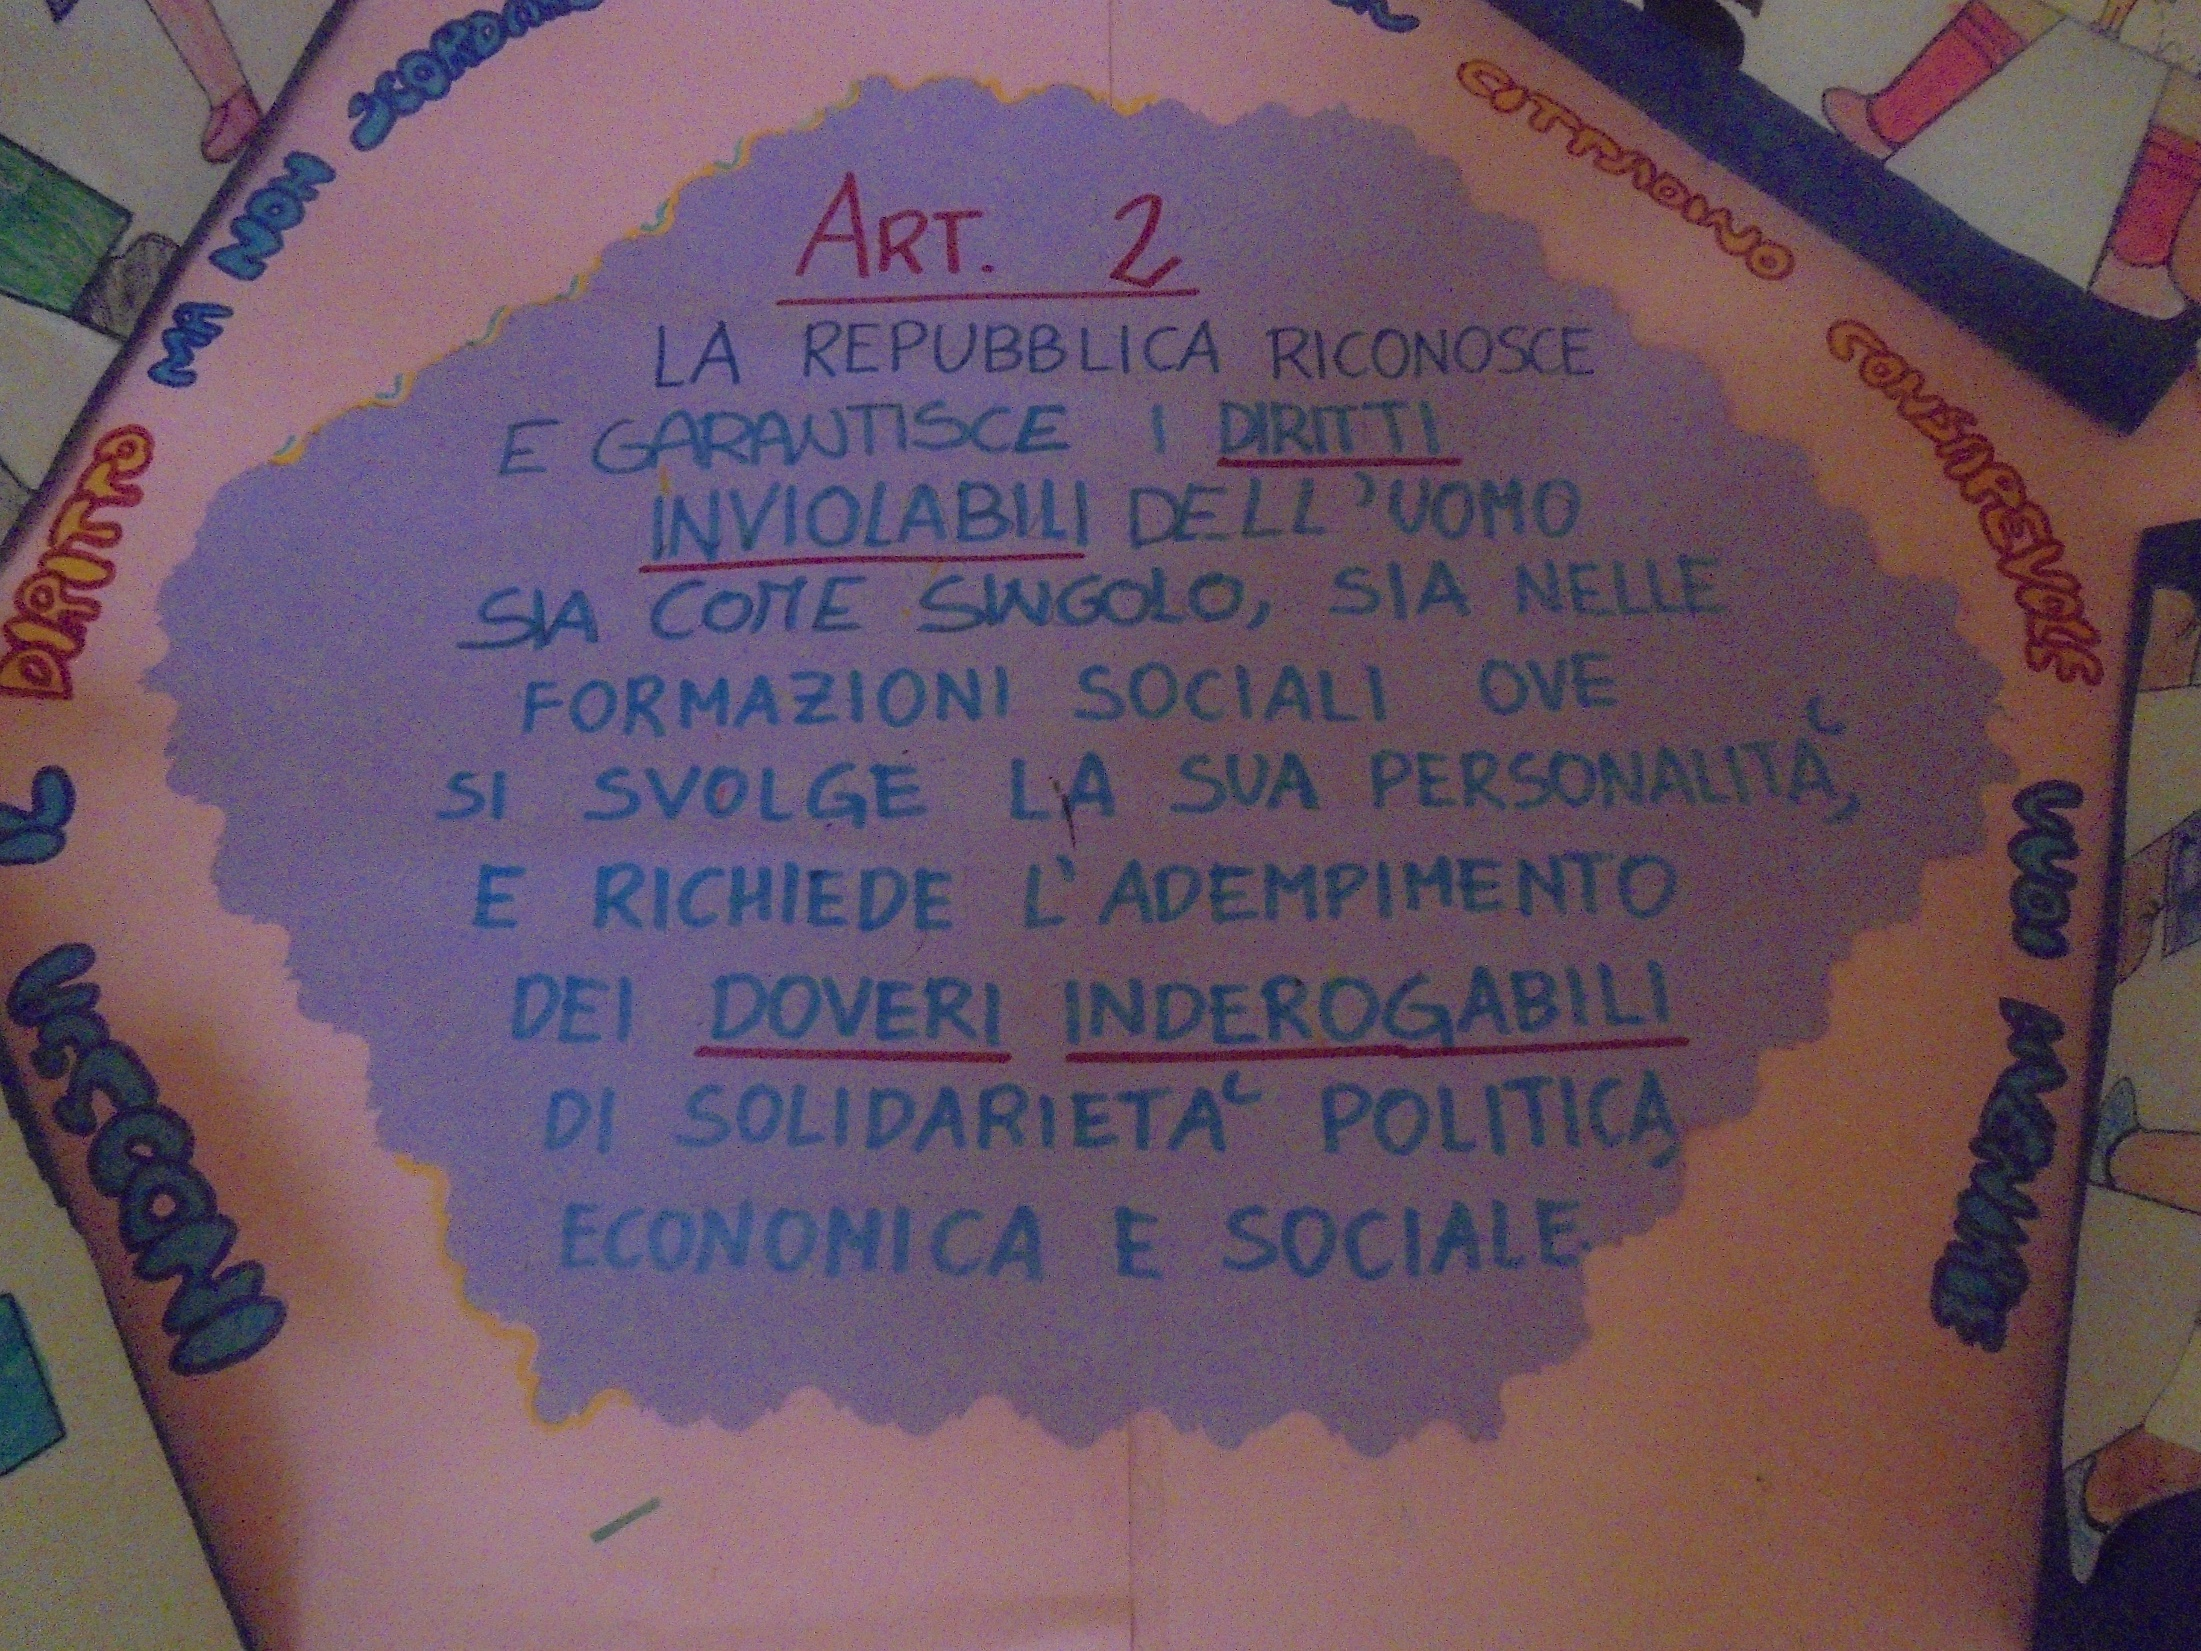 ART. 2
LA REPUBBLICA RICONOSCE
E GARANTISCE I DIRITTI
INVIOLABILI DELL'UOMO
SIA COME SINGOLO, SIA NELLE
FORMAZIONI SOCIALI OVE
SI SVOLGE LA SUA PERSONALITÀ,
E RICHIEDE L'ADEMPIMENTO
DEI DOVERI INDEROGABILI
DI SOLIDARIETÀ POLITICA,
ECONOMICA E SOCIALE.
IL DIRITTO MA NON
CITTADINO CONSAPEVOLE VUOI DIVENTARE